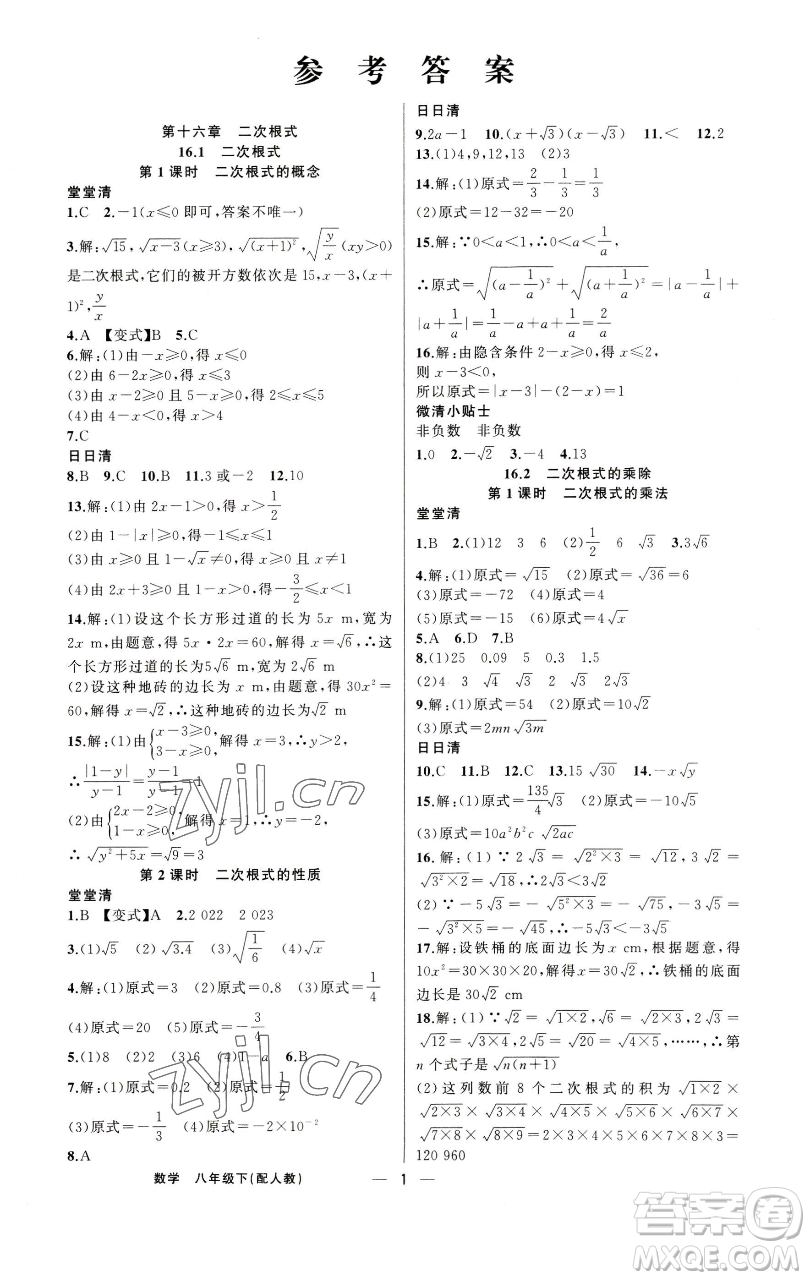 参 考 答 案
第十六章 二次根式
16.1 二次根式
第1课时 二次根式的概念
堂堂清
1.C 2.-1(x≤0即可,答案不唯一)
3.解:√15,√(x-3)(x≥3),√((x+1)²),√(y/x)(xy>0)
是二次根式,它们的被开方数依次是15,x-3,(x+
1)²,y/x
4.A 【变式】B 5.C
6.解:(1)由-x≥0,得x≤0
(2)由6-2x≥0,得x≤3
(3)由x-2≥0且5-x≥0,得2≤x≤5
(4)由4-x<0,得x>4
7.C
日日清
8.B 9.C 10.B 11.3或-2 12.10
13.解:(1)由2x-1>0,得x>1/2
(2)由1-|x|≥0,得-1≤x≤1
(3)由x≥0且1-√x≠0,得x≥0且x≠1
(4)由2x+3≥0且1-x>0,得-3/2≤x<1
14.解:(1)设这个长方形过道的长为5x m,宽为
2x m,由题意,得5x·2x=60,解得x=√6,∴这
个长方形过道的长为5√6 m,宽为2√6 m
(2)设这种地砖的边长为x m,由题意,得30x²=
60,解得x=√2,∴这种地砖的边长为√2 m
15.解:(1)由{x-3≥0, 3-x≥0,得x=3,∴y>2,
∴|1-y|/(y-1)=(y-1)/(y-1)=1
(2)由{2x-2≥0, 1-x≥0,得x=1,∴y=-2,
∴√(y²+5x)=√9=3
第2课时 二次根式的性质
堂堂清
1.B 【变式】A 2.2 022 2 023
3.(1)√5 (2)√3.4 (3)√(1/6) (4)√x
4.解:(1)原式=3 (2)原式=0.8 (3)原式=1/4
(4)原式=20 (5)原式=-3/4
5.(1)8 (2)2 (3)6 (4)1-a 6.B
7.解:(1)原式=0.2 (2)原式=1/2
(3)原式=-1/3 (4)原式=-2×10⁻²
8.A
日日清
9.2a-1 10.(x+√3)(x-√3) 11.< 12.2
13.(1)4,9,12,13 (2)3
14.解:(1)原式=2/3-1/3=1/3
(2)原式=12-32=-20
15.解:∵0<a<1,∴0<a<1/a,
∴原式=√((a-1/a)²)+√((a+1/a)²)=|a-1/a|+
|a+1/a|=1/a-a+a+1/a=2/a
16.解:由隐含条件2-x≥0,得x≤2,
则x-3<0,
所以原式=|x-3|-(2-x)=1
微清小贴士
非负数 非负数
1.0 2.-√2 3.-4 4.13
16.2 二次根式的乘除
第1课时 二次根式的乘法
堂堂清
1.B 2.(1)12 3 6 (2)1/2 6 √3 3.3√6
4.解:(1)原式=√15 (2)原式=√36=6
(3)原式=-72 (4)原式=√3
(5)原式=-15 (6)原式=4√x
5.A 6.D 7.B
8.(1)25 0.09 5 0.3 1.5
(2)4 3 √4 √3 2√3
9.解:(1)原式=54 (2)原式=10√2
(3)原式=2mn√3m
日日清
10.C 11.B 12.C 13.15 √30 14.-x√y
15.解:(1)原式=135/4√3 (2)原式=-10√5
(3)原式=10a²b²c √2ac
16.解:(1)∵2√3=√(2²×3)=√12,3√2=
√(3²×2)=√18,√12<√18,∴2√3<3√2
(2)∵-5√3=-√(5²×3)=-√75,-3√5=
-√(3²×5)=-√45,-√75<-√45,∴-5√3<-3√5
17.解:设铁桶的底面边长为x cm,根据题意,得
10x²=30×30×20,解得x=30√2,∴铁桶的底面
边长是30√2 cm
18.解:(1)∵√2=√(1×2),√6=√(2×3),2√3=
√12=√(3×4),2√5=√20=√(4×5),……,∴第
n个式子是√(n(n+1))
(2)这列数前8个二次根式的积为√(1×2)×
√(2×3)×√(3×4)×√(4×5)×√(5×6)×√(6×7)×
√(7×8)×√(8×9)=1×2×3×4×5×6×7×8×3=
120 960
数学 八年级下(配人教)
— 1 —
zyjl.cn
zyjl.cn
答案卷
MXQE.COM